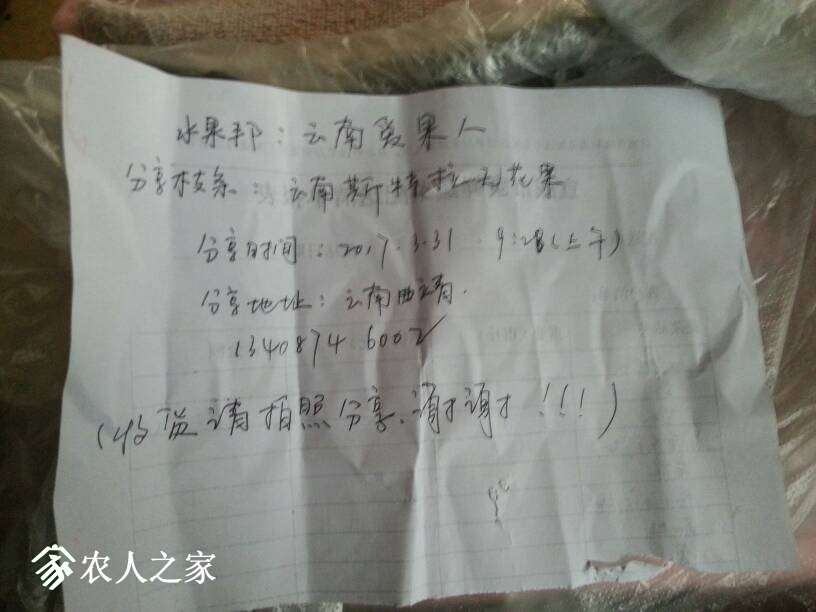 水果邦：云南爱果人
分享枝条：云南斯特拉无花果
分享时间：2017.3.31. 9:28(上午)
分享地址：云南曲靖.
13408746002
(收货请拍照分享、谢谢!!!)
农人之家